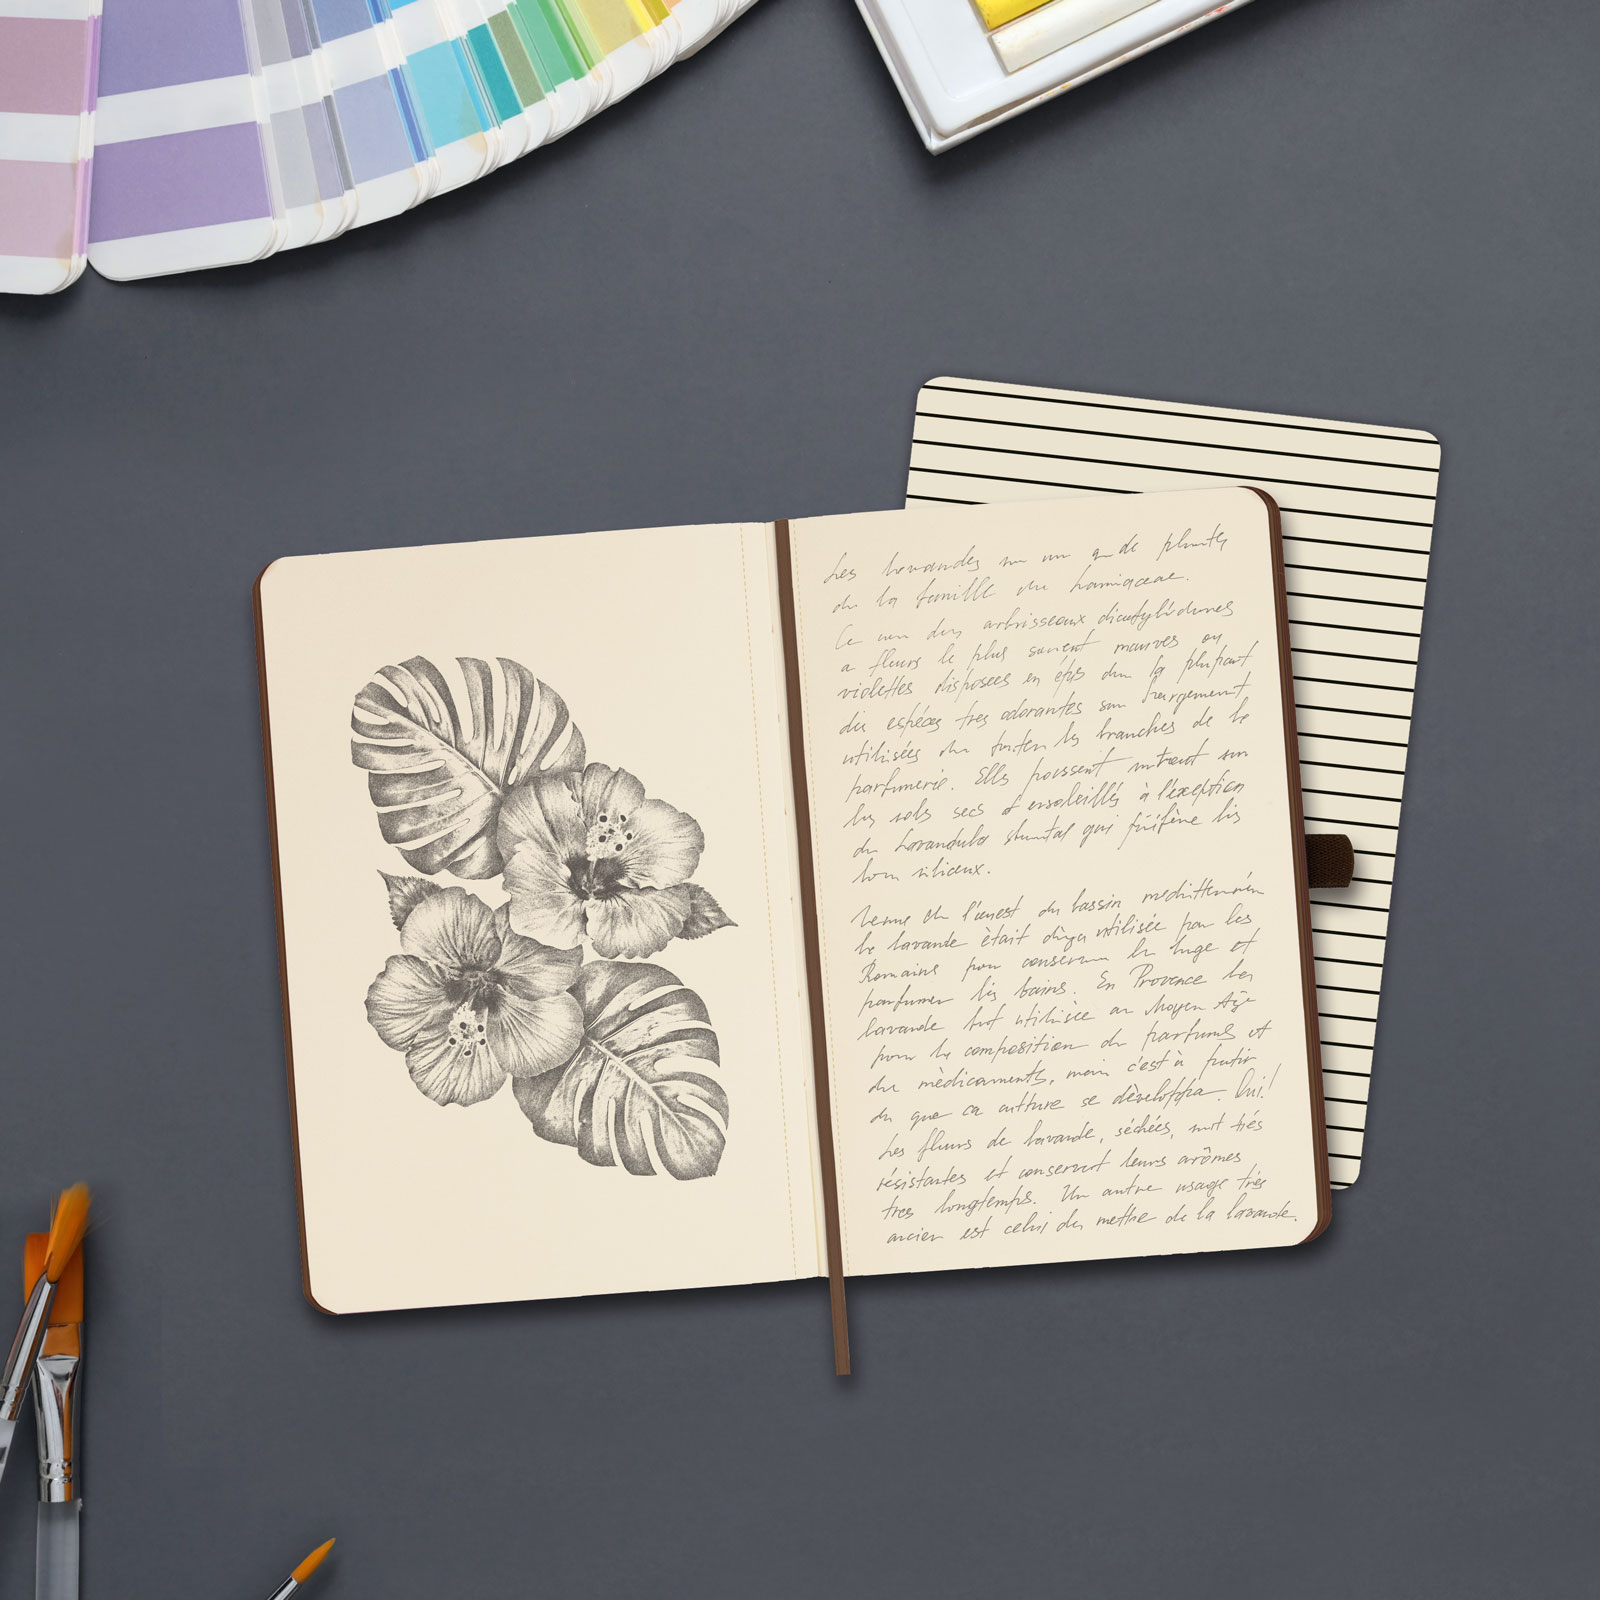 Les lavandes un de plantes
de la famille du Lamiaceae.
Ce arbrisseaux dicotylédones
a fleurs le plus souvent mauves ou
violettes disposees en épis la plupart
des espéces tres odorantes largement
utilisées les branches de la
parfumerie. Elles poussent surtout sur
les sols secs et ensoleillés à l'exeption
du Lavandula qui préfère les
siliceux.
Venue de l'ouest du bassin mediterranéen
la lavande ètait dèja utilisée par les
Romains pour conserver le linge et
parfumer les bains. En Provence les
lavande fut utilisèe au Moyen Age
pour la composition de parfums et
de mèdicaments, mais c'est à partir
du que ca culture se dèveloppa. Oui!
Les fleurs de lavande, séchées, sont trés
résistantes et conservent leurs arômes
tres longtemps. Un autre usage trés
ancien est celui du mettre de la lavande.